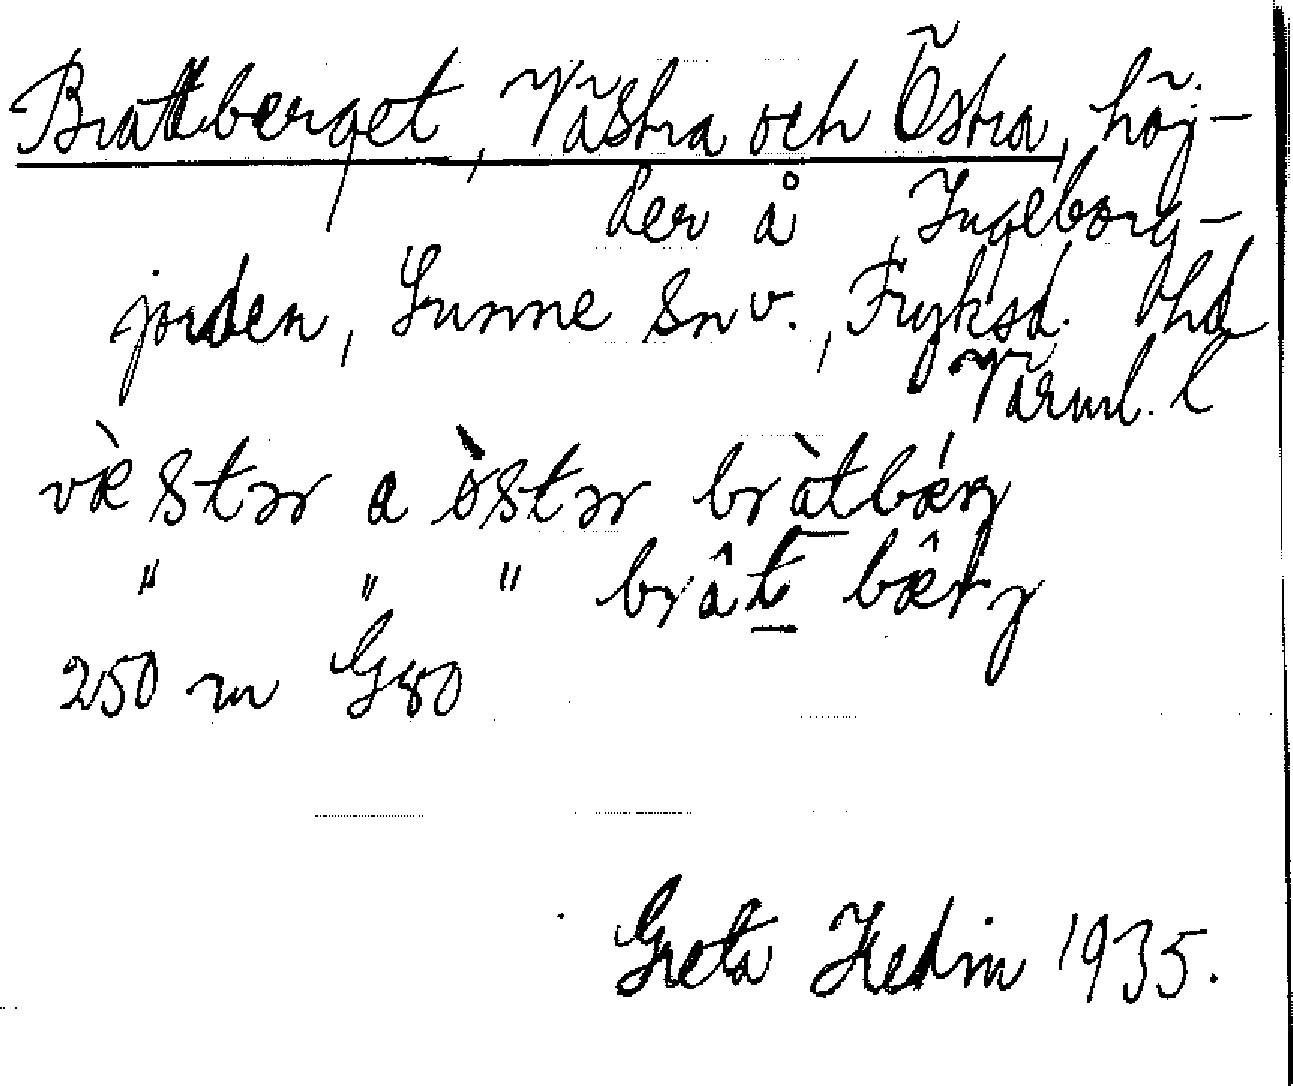 Brattberget, Västra och Östra, höj-
der å Ingeborg-
jorden, Sunne sn v., Fryksd. hd
Värml. l
vɶ̀stər a ø̀stər bràtbǽrj
" " " brât bæ̂rj
250 m G80
Greta Hedin 1935.